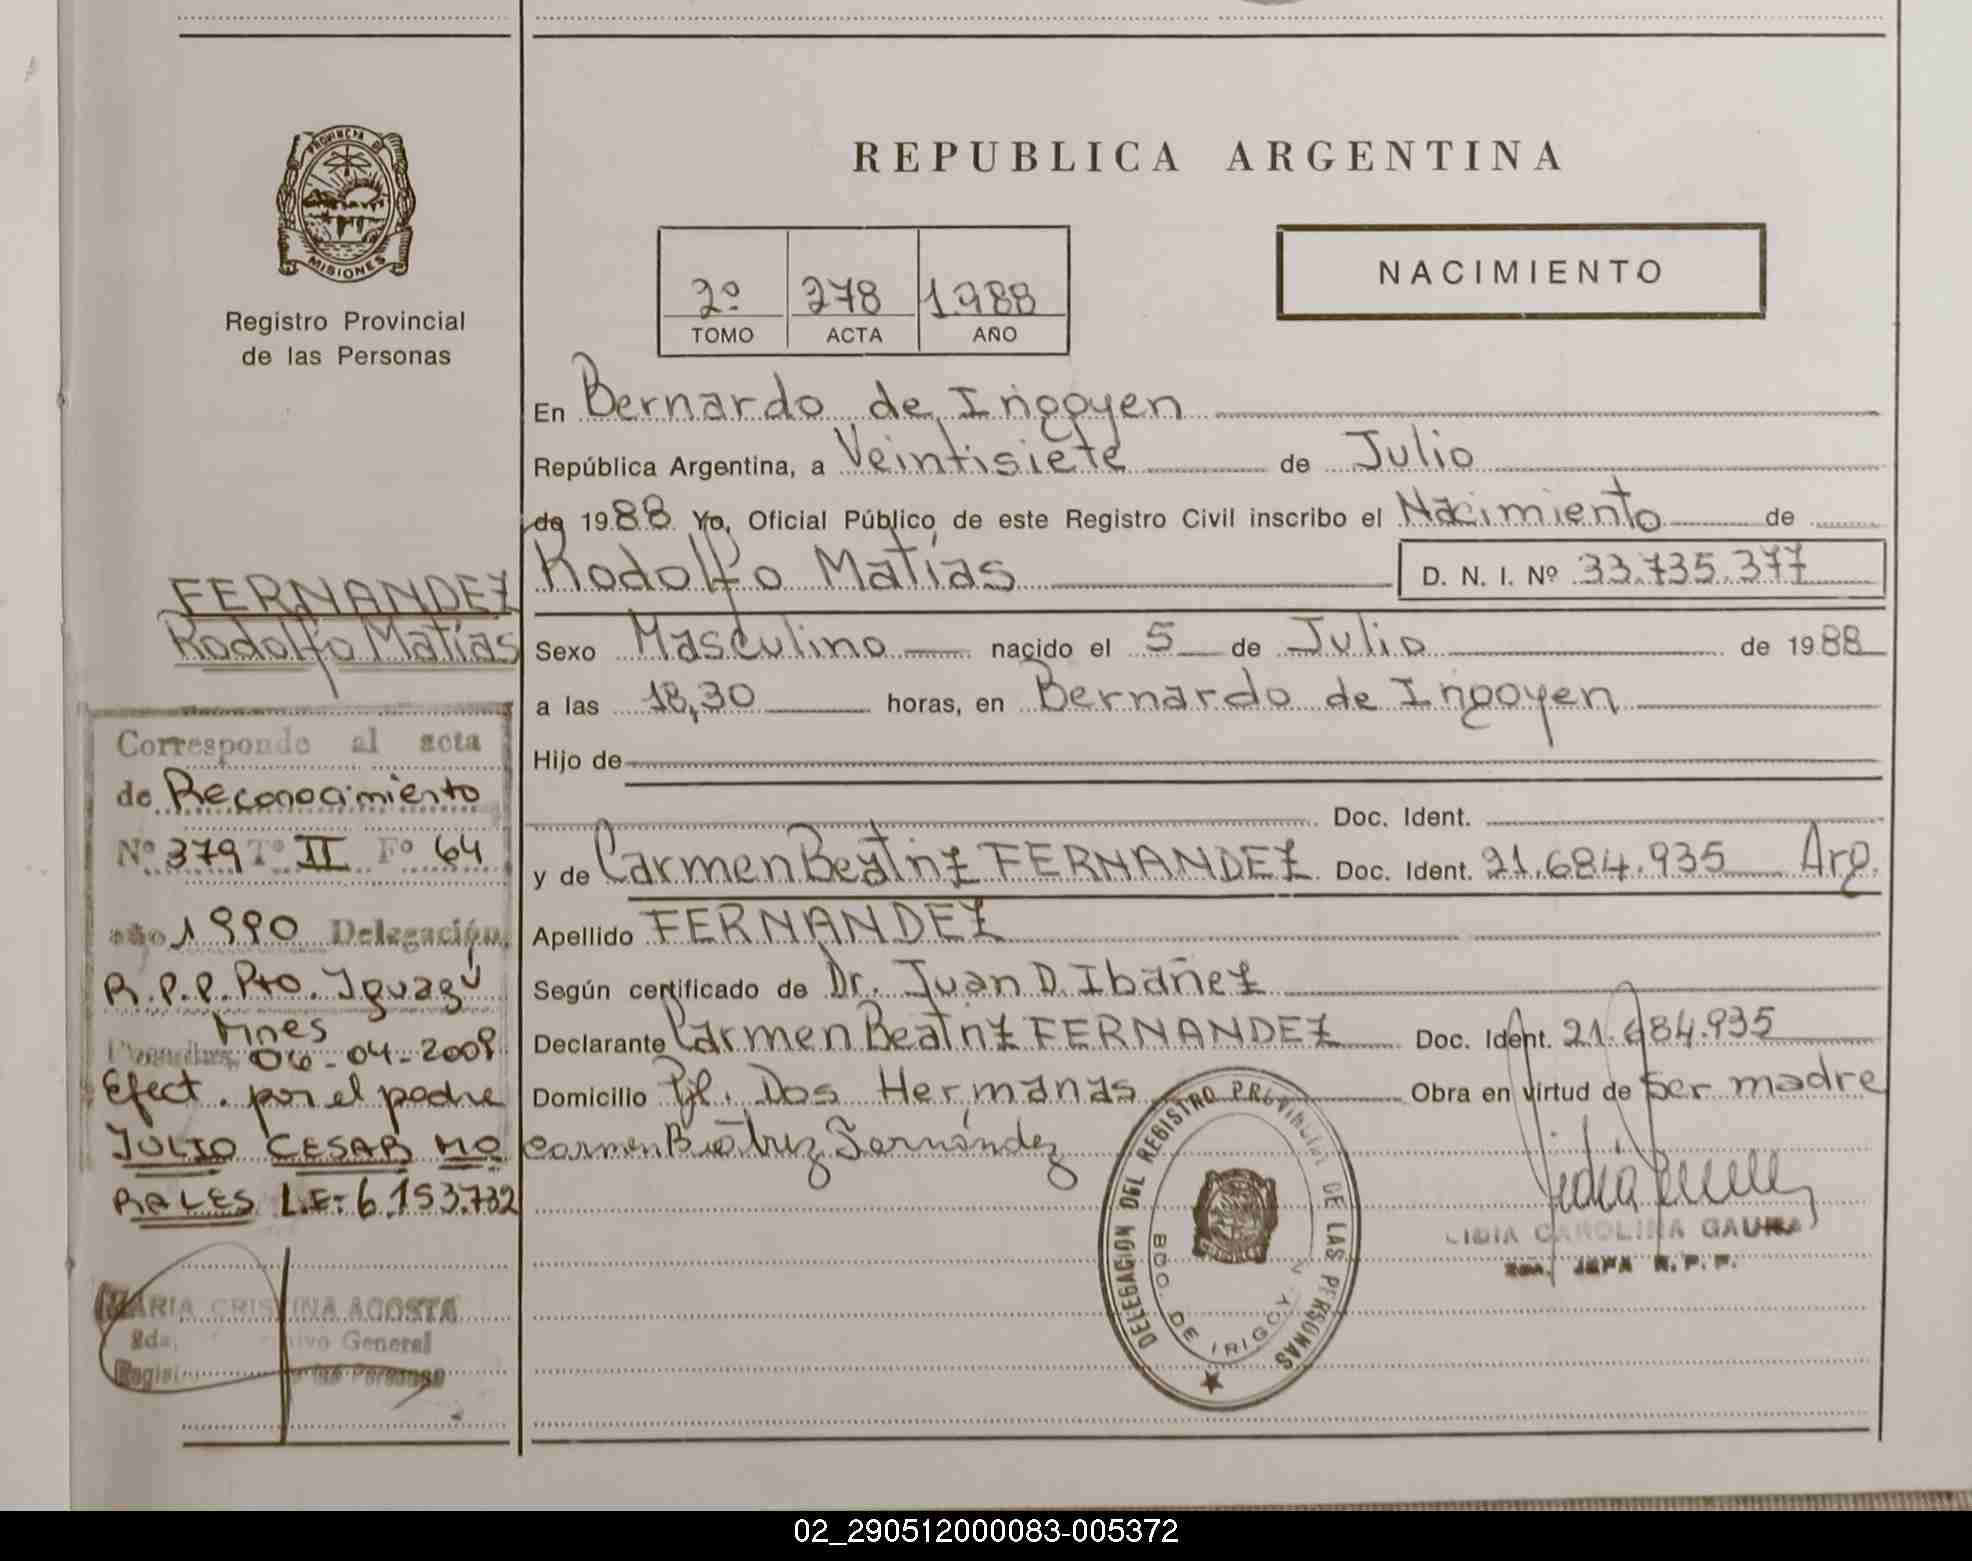 REPUBLICA ARGENTINA
PROVINCIA DE
MISIONES
Registro Provincial
de las Personas
NACIMIENTO
2º 278 1.988
TOMO ACTA AÑO
En Bernardo de Irigoyen
República Argentina, a Veintisiete de Julio
de 1988 Yo, Oficial Público de este Registro Civil inscribo el Nacimiento de
Rodolfo Matías D. N. I. Nº 33.735.377
FERNANDEZ
Rodolfo Matías
Sexo Masculino nacido el 5 de Julio de 1988
a las 18,30 horas, en Bernardo de Irigoyen
Hijo de
Doc. Ident.
y de Carmen Beatriz FERNANDEZ Doc. Ident. 21.684.935 Arg.
Apellido FERNANDEZ
Según certificado de Dr. Juan D. Ibañez
Declarante Carmen Beatriz FERNANDEZ Doc. Ident. 21.684.935
Domicilio Pje. Dos Hermanas Obra en virtud de ser madre
Carmen Beatriz Fernández
Corresponde al acta
de Reconocimiento
Nº 379 Tº II Fº 64
año 1990 Delegación
R.P.P. Pto. Iguazú
Mnes
06-04-2009
Efect. por el padre
JULIO CESAR MO
RALES L.E: 6.153.732
MARIA CRISTINA ACOSTA
2da. General
DELEGACION DEL REGISTRO PROVINCIAL DE LAS PERSONAS
BDO. DE IRIGOYEN
LIDIA CAROLINA GAUNA
JEFA R.P.P.
02_290512000083-005372